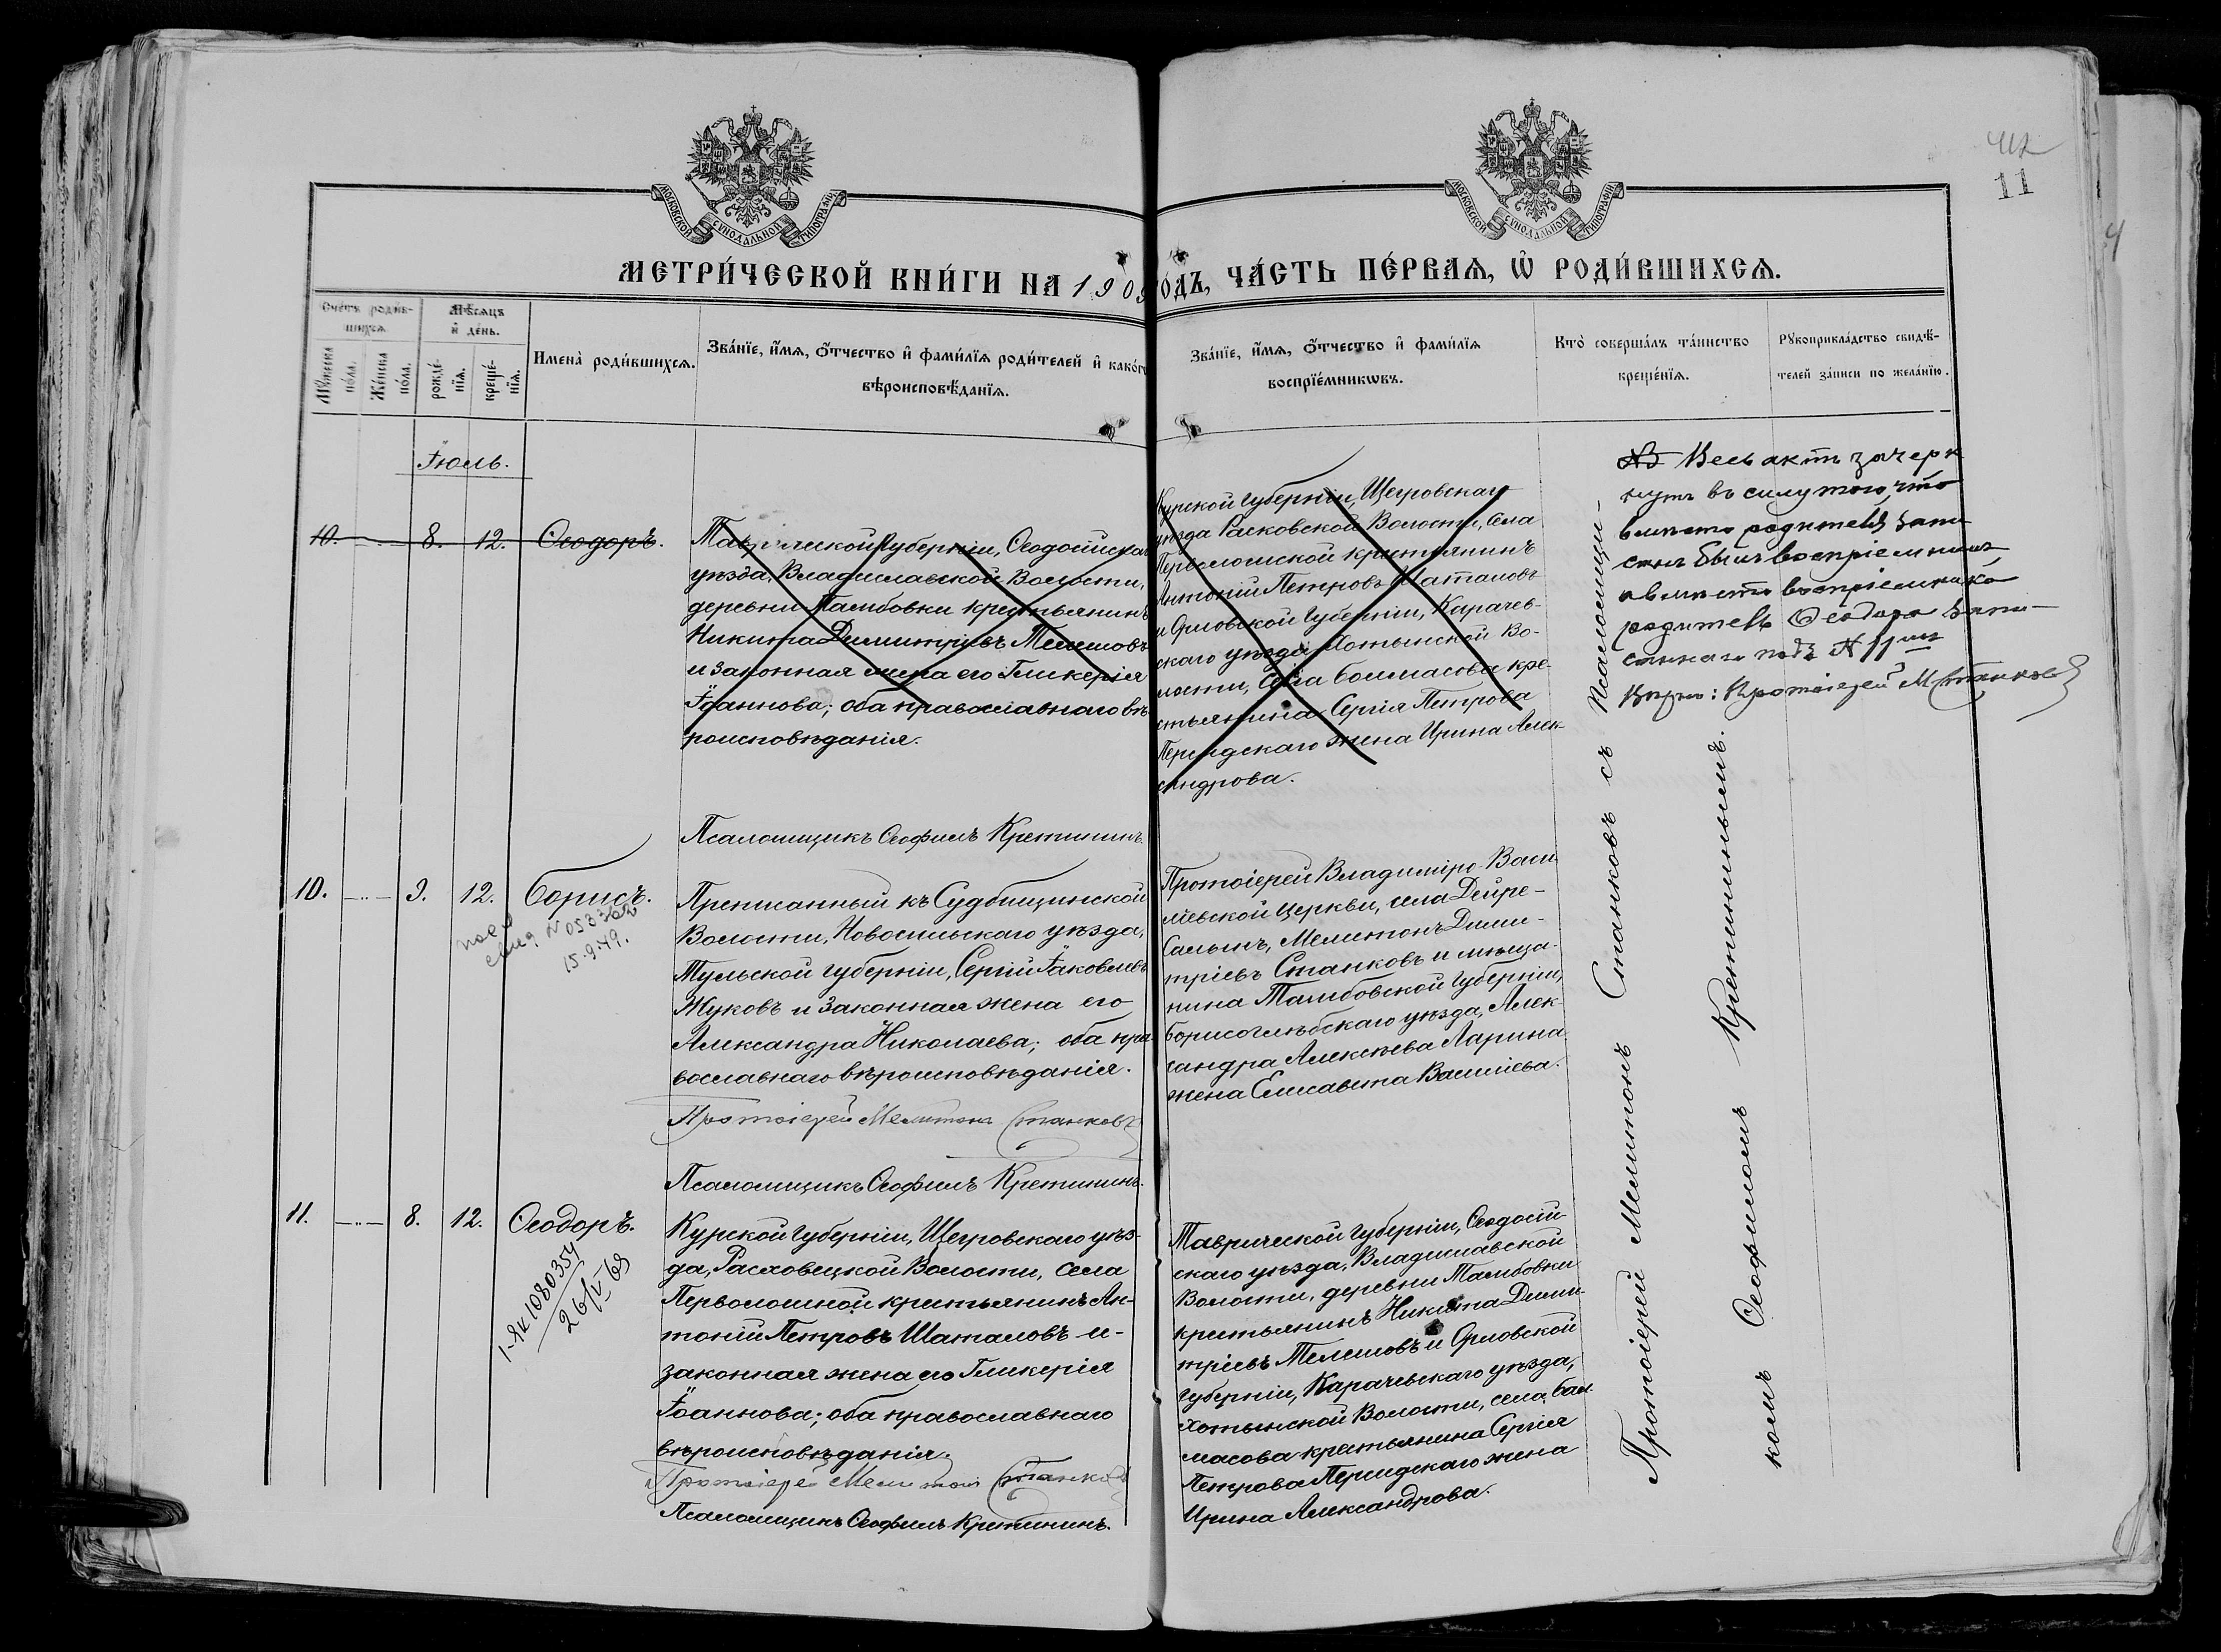 МОСКОВСКОЙ СУНОДАЛЬНОЙ ТИПОГРАФІИ
МОСКОВСКОЙ СУНОДАЛЬНОЙ ТИПОГРАФІИ
11
МЕТРИ́ЧЕСКОЙ КНИ́ГИ НА 1909 ГОДЪ, ЧА́СТЬ ПЕ́РВАЯ, Ѡ҆ РОДИ́ВШИХСЯ.
Сче́тъ роди́в-
шихся.
Му́жеска
по́ла.
Же́нска
по́ла.
Мѣ́сяцъ
и҆ де́нь.
рожде́-
нїя.
креще́-
нїя.
Имена̀ роди́вшихся.
Зва́нїе, и҆́мя, о҆́тчество и҆ фами́лїя роди́телей и҆ како́гѡ
вѣроисповѣ́данїя.
Зва́нїе, и҆́мя, о҆́тчество и҆ фами́лїя
воспрїе́мникѡвъ.
Кто̀ соверша́лъ та́инство
креще́нїя.
Рꙋкоприкла́дство свидѣ́-
телей за́писи по жела́нїю.
Іюль.
10. 8. 12. Ѳеодоръ.
Таврической Губерніи, Ѳеодосійскаго
уѣзда, Владиславской Волости,
деревни Тамбовки крестьянинъ
Никита Димитріевъ Телешовъ
и законная жена его Гликерія
Іоаннова; оба православнаго вѣ-
роисповѣданія.
Псаломщикъ Ѳеофилъ Кретининъ.
Курской Губерніи, Щегровскаго
уѣзда Расховской Волости, села
Перволошной крестьянинъ
Антоній Петровъ Шаталовъ
и Орловской Губерніи, Карачев-
скаго уѣзда Хотынской Во-
лости, селаБолмасова кре-
стьянина Сергія Петрова
Персидскаго жена Ирина Алек-
сандрова.
NB Весь актъ зачерк
нутъ въ силу того, что
вмѣсто родителя запи
санъ былъ воспріемникъ
а вмѣсто воспріемника
родитель Ѳеодора запи-
саннаго подъ № 11мъ
Вѣрно: Протоіерей М Станковъ
10. 9. 12. Борисъ.
№ 053362
15.9.49.
Преписанный къ Судбищинской
Волости, Новосильскаго уѣзда,
Тульской губерніи, Сергій Іаковлевъ
Жуковъ и законная жена его
Александра Николаева; оба пра-
вославнаго вѣроисповѣданія.
Протоіерей Мелитонъ Станковъ
Псаломщикъ Ѳеофилъ Кретининъ.
Протоіерей Владиміро-Васи
ліевской церкви, села Дейре-
Салынъ, Мелитонъ Дими-
тріевъ Станковъ и мѣща-
нина Тамбовской губерніи,
Борисоглѣбскаго уѣзда, Алек
сандра Алексѣева Ларина
жена Елисавета Васильева.
11. 8. 12. Ѳеодоръ.
1-ЯК 1080354
26/V-69
Курской Губерніи, Щегровскаго уѣз-
да, Расховецкой Волости, села
Перволошной крестьянинъ Ан-
тоній Петровъ Шаталовъ и-
законная жена его Гликерія
Іоаннова; оба православнаго
вѣроисповѣданія.
Протоіерей Мелитонъ Станковъ
Псаломщикъ Ѳеофилъ Кретининъ.
Таврической Губерніи, Ѳеодосій-
скаго уѣзда, Владиславской
Волости, деревни Тамбовки
крестьянинъ Никита Дими-
тріевъ Телешовъ и Орловской
губерніи, Карачевскаго уѣзда,
Хотынской Волости, села Бол
масова крестьянина Сергія
Петрова Персидскаго жена
Ирина Александрова.
Протоіерей Мелитонъ Станковъ съ Псаломщи-
комъ Ѳеофиломъ Кретининымъ.